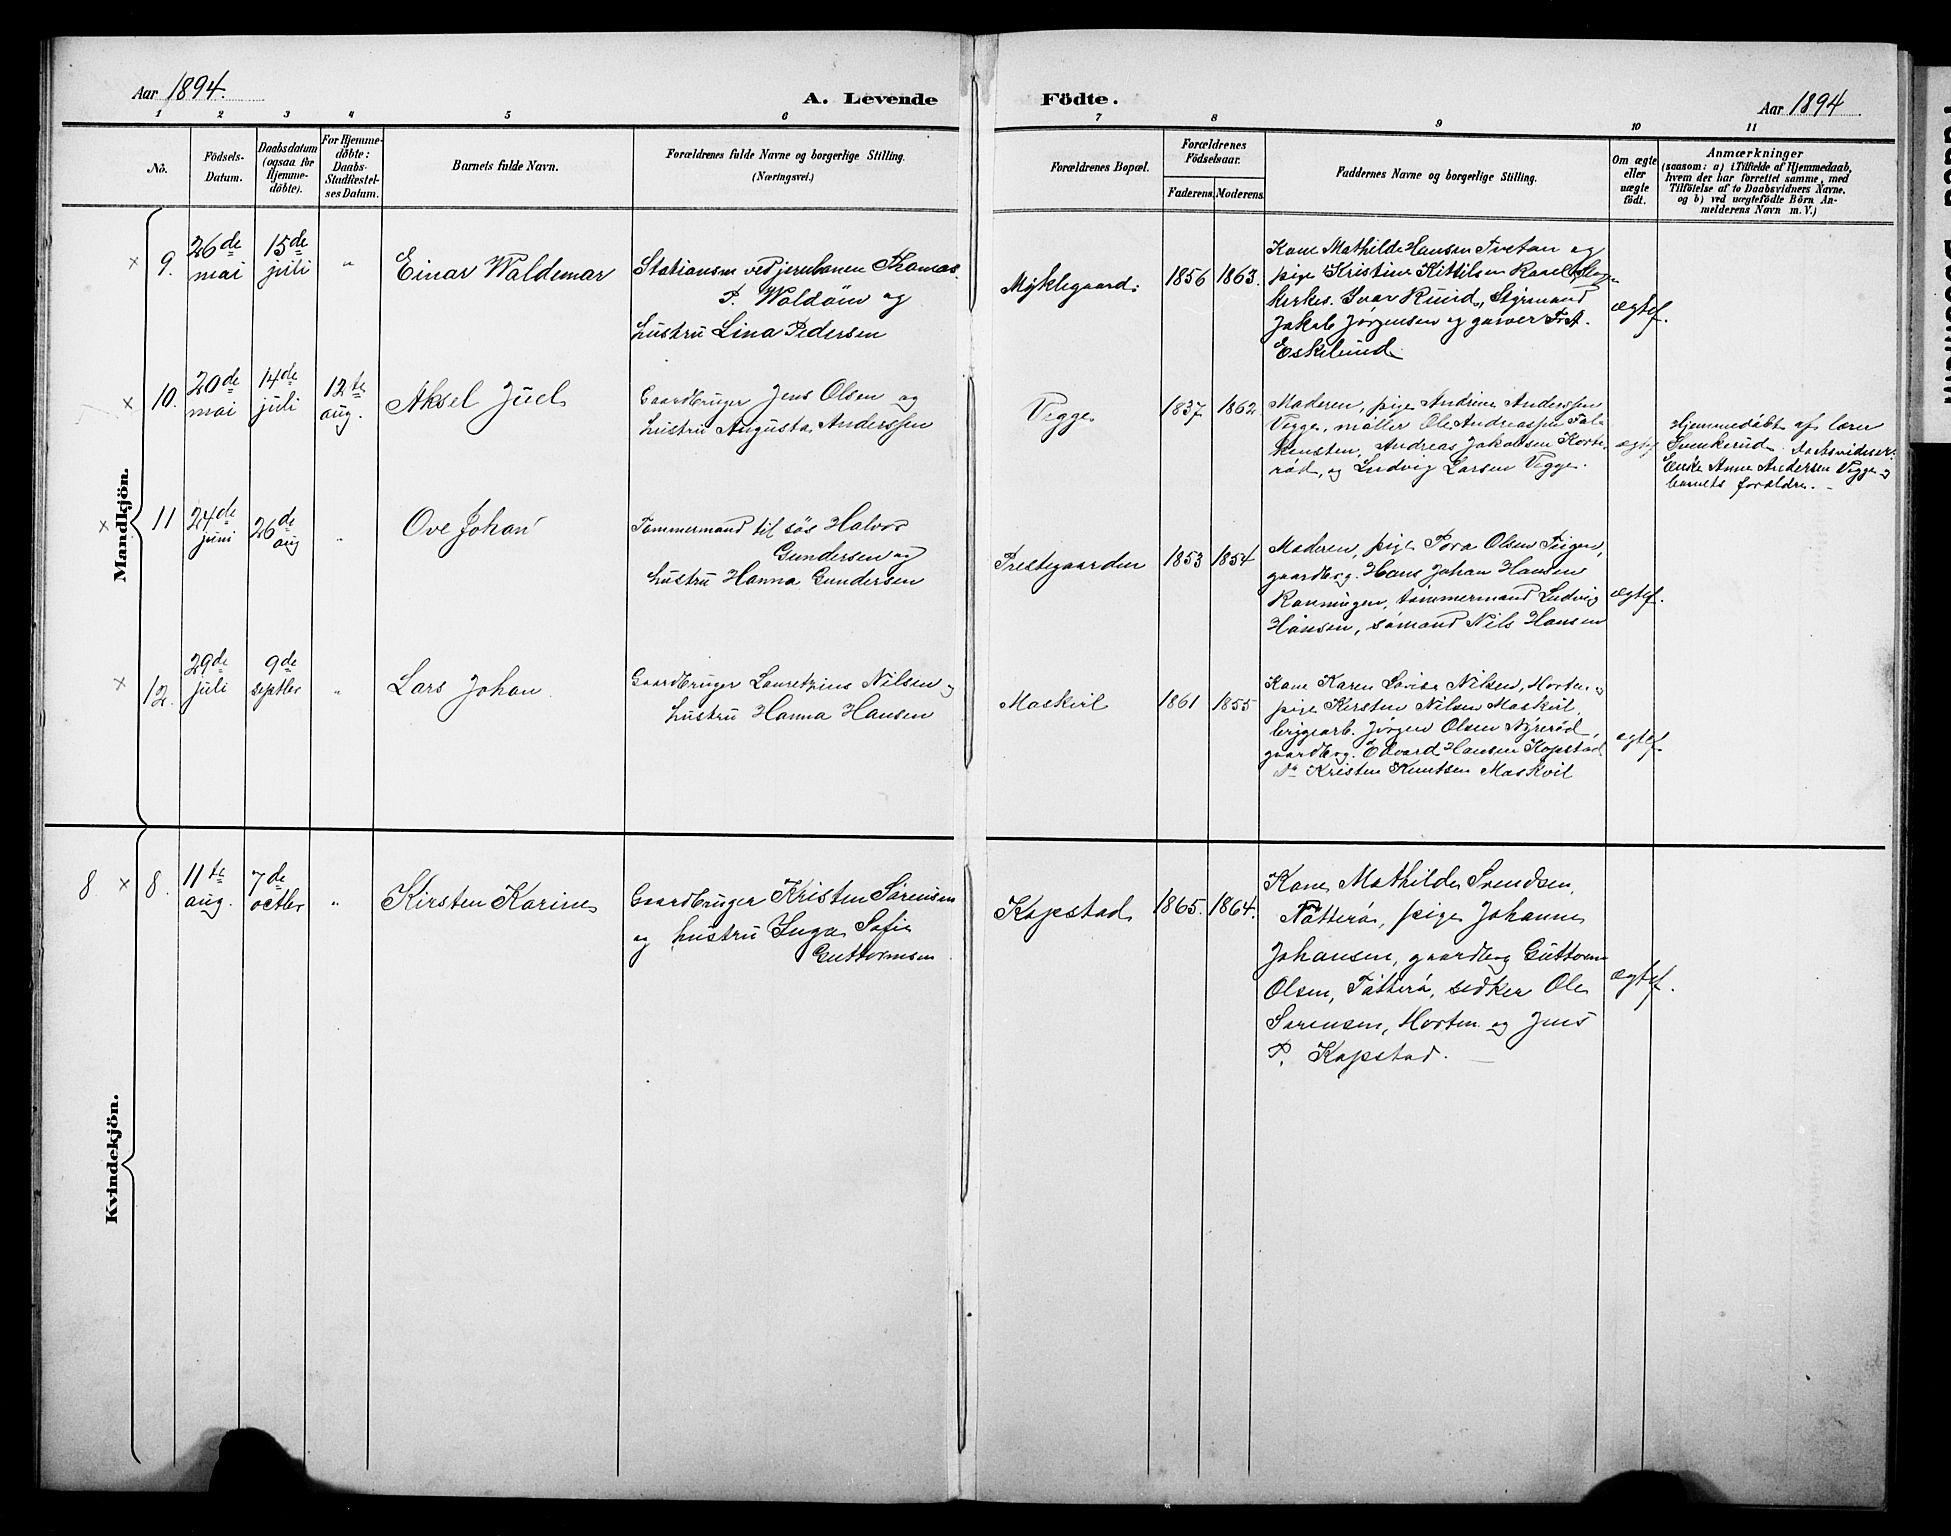 Aar 1894.
A. Levende Födte.
Aar 1894
1 2 3 4 5 6 7 8 9 10 11
No.
Födsels-
Datum.
Daabsdatum
(ogsaa for
Hjemme-
døbte).
For Hjemme-
døbte:
Daabs-
Stadfæstel-
ses Datum.
Barnets fulde Navn.
Forældrenes fulde Navne og borgerlige Stilling.
(Næringsvei.)
Forældrenes Bopæl.
Forældrenes
Födselsaar.
Faderens. Moderens.
Faddernes Navne og borgerlige Stilling.
Om ægte
eller
uægte
født.
Anmærkninger
(saasom: a) i Tilfælde af Hjemmedaab,
hvem der har forrettet samme, med
Tilføielse af to Daabsvidners Navne,
og b) ved uægtefødte Börn An-
melderens Navn m. V.)
Mandkjön.
× 9.
26de
mai
15de
juli
"
Einar Waldemar
Stationsm ved jernbanen Thomas
P. Woldøin og
hustru Lina Pedersen
Myklegaard
1856 1863.
Kone Mathilde Hansen Tvetan og
pige Kristine Kittilsen
kirkes. Ivar Ruud, Styrmand
Jakob Jørgensen og garver Fr. A.
Eskilund
ægtef.
× 10.
20de
mai
14de
juli
12te
aug.
Aksel Juel
Gaardbruger Jens Olsen og
hustru Augusta Anderssen
Vegge
1837 1862
Moderen, pige Andrine Anderssen
Vegge, møller Ole Andreassen Fal-
kensten, Andreas Jakobsen Korte-
rød, og Ludvig Larsen Vegge.
ægtef
Hjemmedøbt af lærer
Svenkerud. Daabsvidner:
Enke Anne Andersen Vegge og
barnets forældre. –
× 11
24de
juni
26de
aug
"
Ove Johan
Tømmermand til søs Halvor
Gundersen og
hustru Hanna Gundersen
Prestegaarden
1853 1854
Moderen, pige Tora Olsen Teigen,
gaardbrg. Hans Johan Hansen
Ronningen, tømmermand Ludvig
Hansen, sømand Nils Hansen
ægtef.
× 12.
29de
juli
9de
septbr
"
Lars Johan
Gaardbruger Lauretzius Nilsen og
hustru Hanna Hansen
Maskvil
1861 1855
Kone Karen Lovise Nilsen, Horten og
pige Kirsten Nilsen Maskvil,
bryggearb. Jørgen Olsen Nyrerød,
gaardbrg. Edvard Hansen Kopstad
do Kristen Knutsen Maskvil
ægtef.
Kvindekjön.
8. × 8.
11te
aug.
7de
octbr
"
Kirsten Karine
Gaardbruger Kristen Sørensen
og hustru Inga Sofie
Guttormsen
Kopstad
1865. 1864.
Kone Mathilde Svendsen,
Nøtterø, pige Johanne
Johansen, gaardbrg Guttorm
Olsen, Tøtterø, sedker Ole
Sørensen, Horten og Jens
P. Kopstad. –
ægtef.